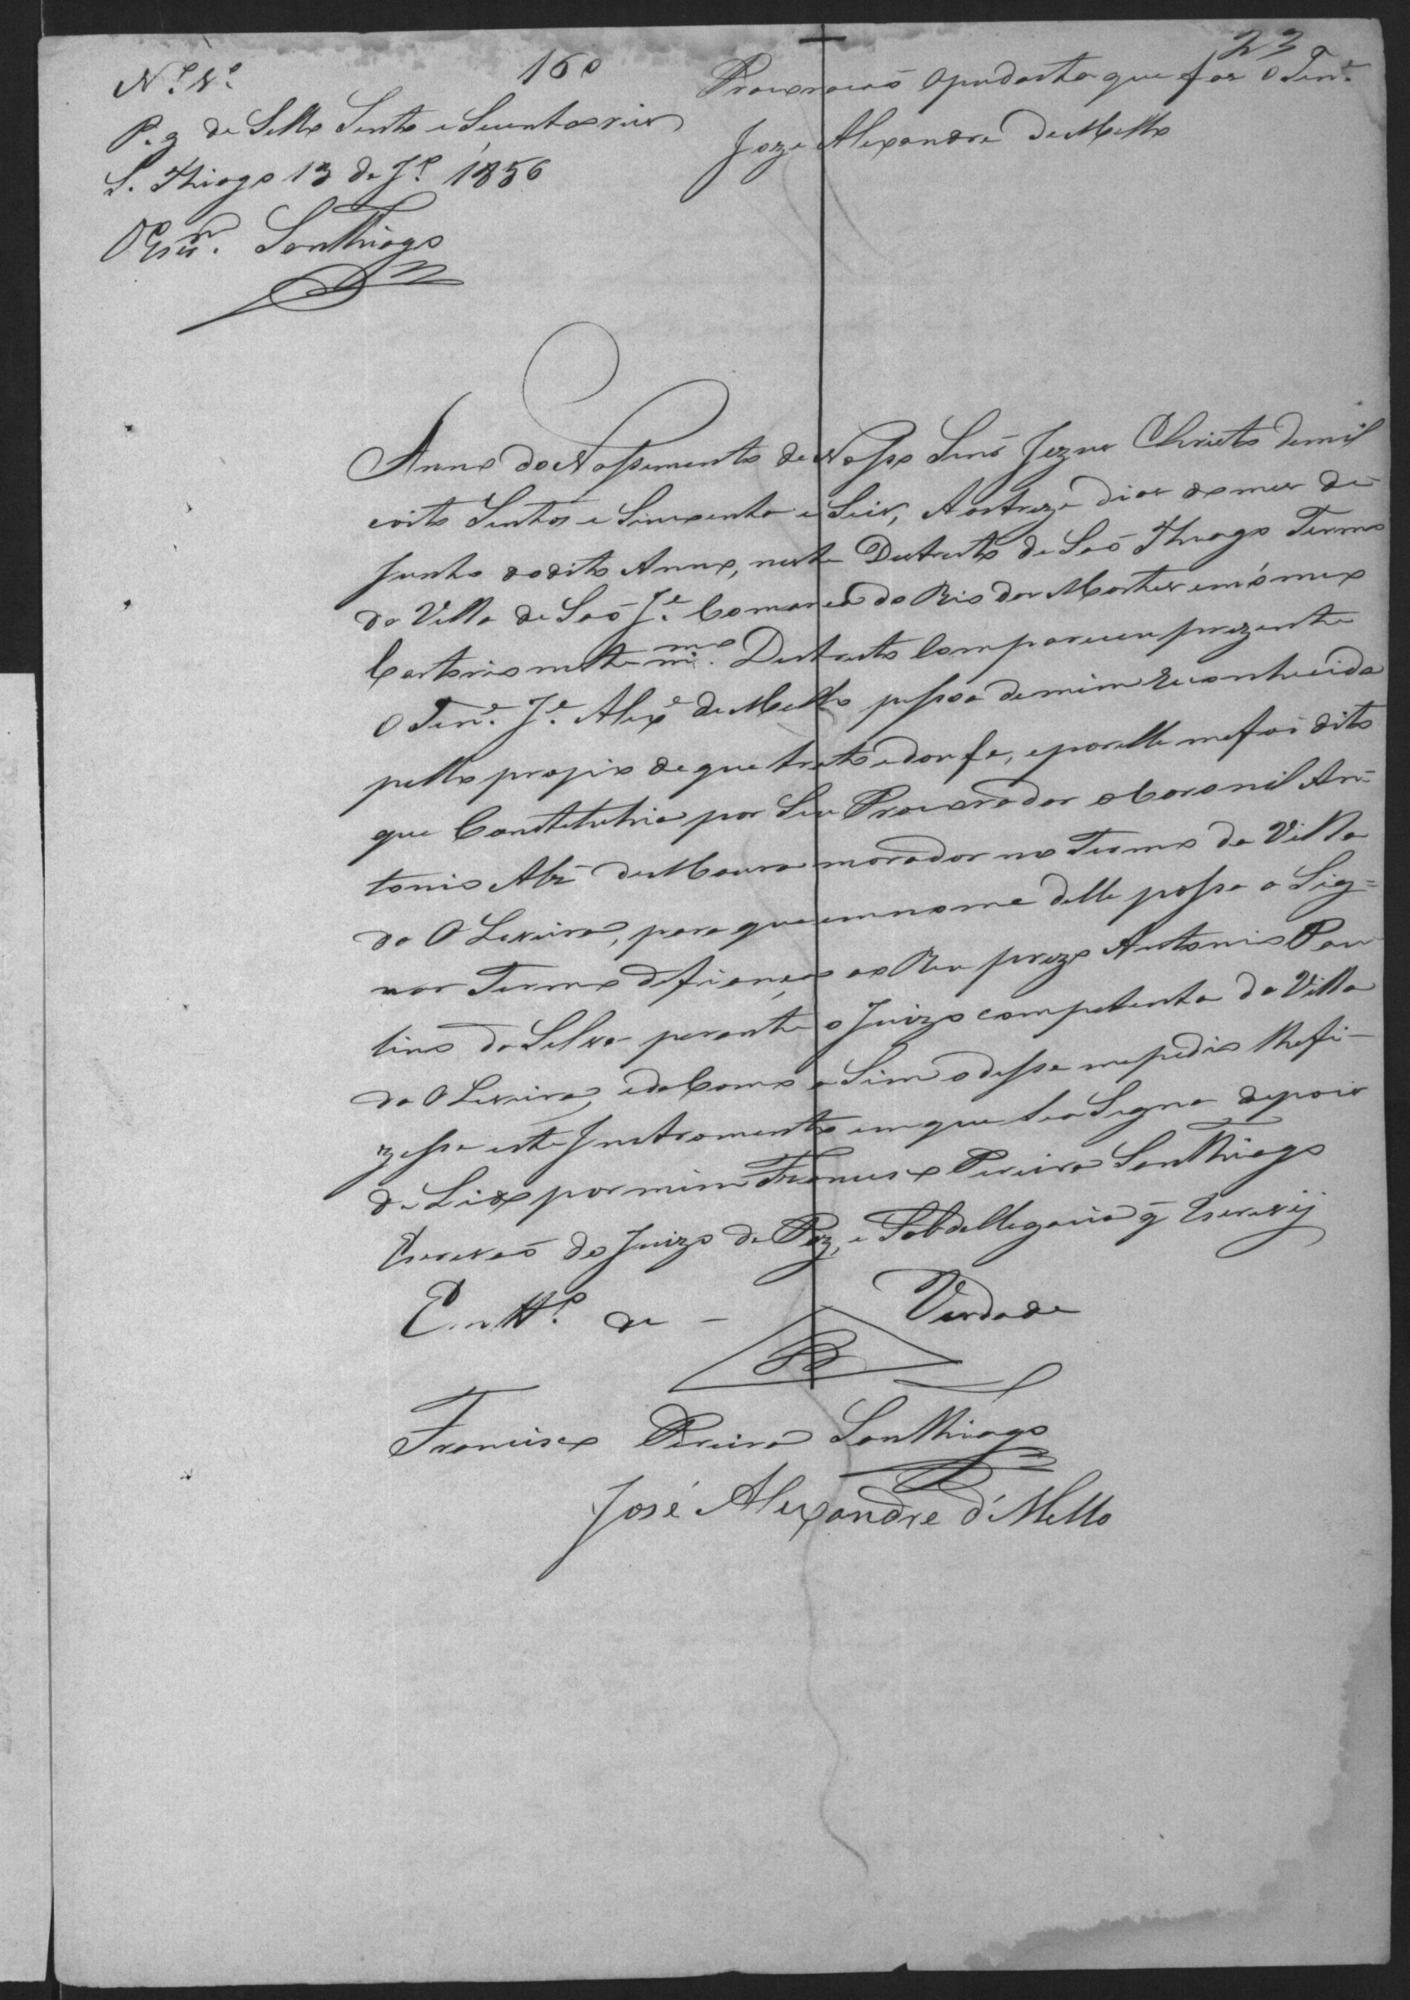 23
N.º 1.º 160
P. g de Sello Sento e Secenta reis
S. Thiago 13 de J.º 1856
O Escr.m SanThiago
Procuracaó apudacta que faz o Ten.e
Joze Alexandre de Mello
Anno do Nassimento de Nosso Senr Jezus Christo de mil
oito Sentos e Sincoenta e Seis, Aos treze dias do mes de
Junho do dito Anno, neste Destrito de Saó Thiago Termo
da Villa de Saó J.e Comarca do Rio das Mortes em o meu
Cartorio neste m.mo Destrito Compareceu prezente
o Ten.e J.e Alex.e de Mello pessoa de mim reconhecida
pello proprio de que trato e dou fe, e por elle me foi dito
que Constetuhia por Seu Procurador o Coronil An=
tonio Alz de Moura morador no Termo da Villa
da Oliveira, para que em nome delle possa a Sig=
nar Termo de fiança ao Reu prezo Antonio Pau
lino da Silva perante o Juizo competente da Villa
da Oliveira, e de Como a Sim o disse me pedio lhe fi-
zesse este Instromento em que Se a Signa depois
de Lido por mim Francisco Pereira SanThiago
Escrivaó do Juizo de Paz, e Sobdellegacia q̃ Escrevij
Em tt.º de - Verdade
Francisco Pereira SanThiago
José Alexandre d'Mello